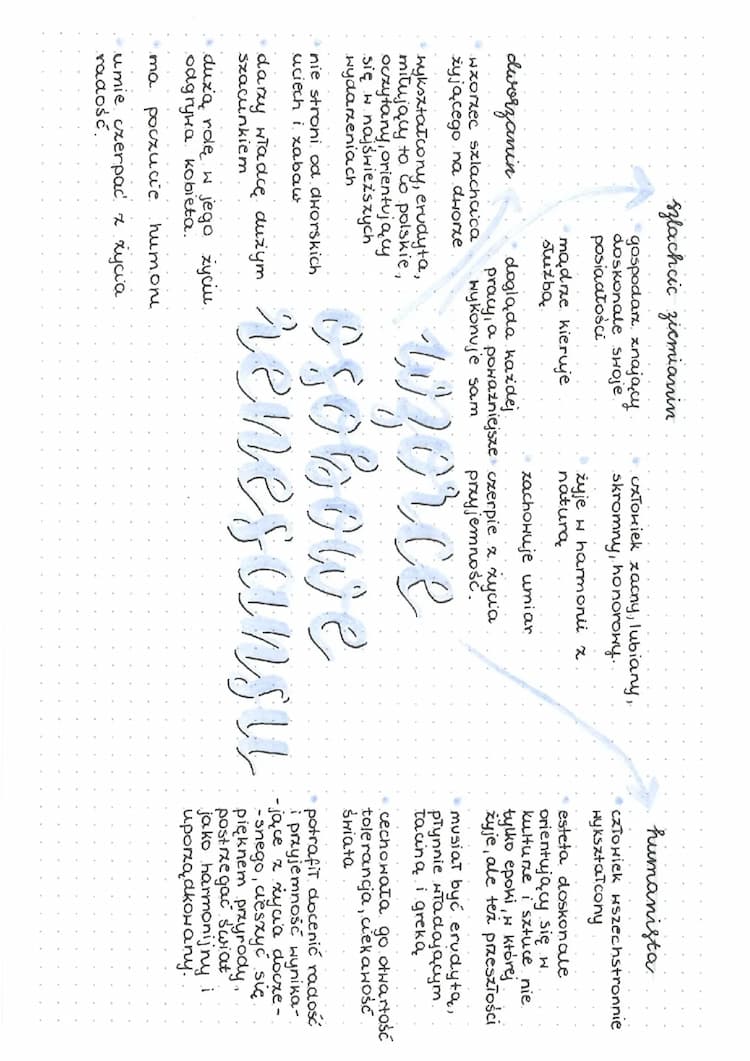 wzorce
osobowe
renesansu
dworzanin
wzorzec szlachcica
żyjącego na dworze
wykształcony, erudyta,
miłujący to co polskie,
oczytany, orientujący
się w najświeższych
wydarzeniach
nie stroni od dworskich
uciech i zabaw
darzy władcę dużym
szacunkiem
dużą rolę w jego życiu
odgrywa kobieta.
ma poczucie humoru
umie czerpać z życia
radość.
szlachcic ziemianin
gospodarz znający
doskonale swoje
posiadłości
mądrze kieruje
służbą
dogląda każdej
pracy, a poważniejsze
wykonuje sam
człowiek zacny, lubiany,
skromny, honorowy.
żyje w harmonii z
naturą
zachowuje umiar
czerpie z życia
przyjemność.
humanista
człowiek wszechstronnie
wykształcony
esteta doskonale
orientujący się w
kulturze i sztuce nie
tylko epoki, w której
żyje, ale też przeszłości
musiał być erudytą,
płynnie władającym
łaciną i greką
cechowała go otwartość
tolerancja, ciekawość
świata
potrafił docenić radość
i przyjemność wynika-
-jące z życia docze-
-snego, cieszyć się
pięknem przyrody,
postrzegać świat
jako harmonijny i
uporządkowany.